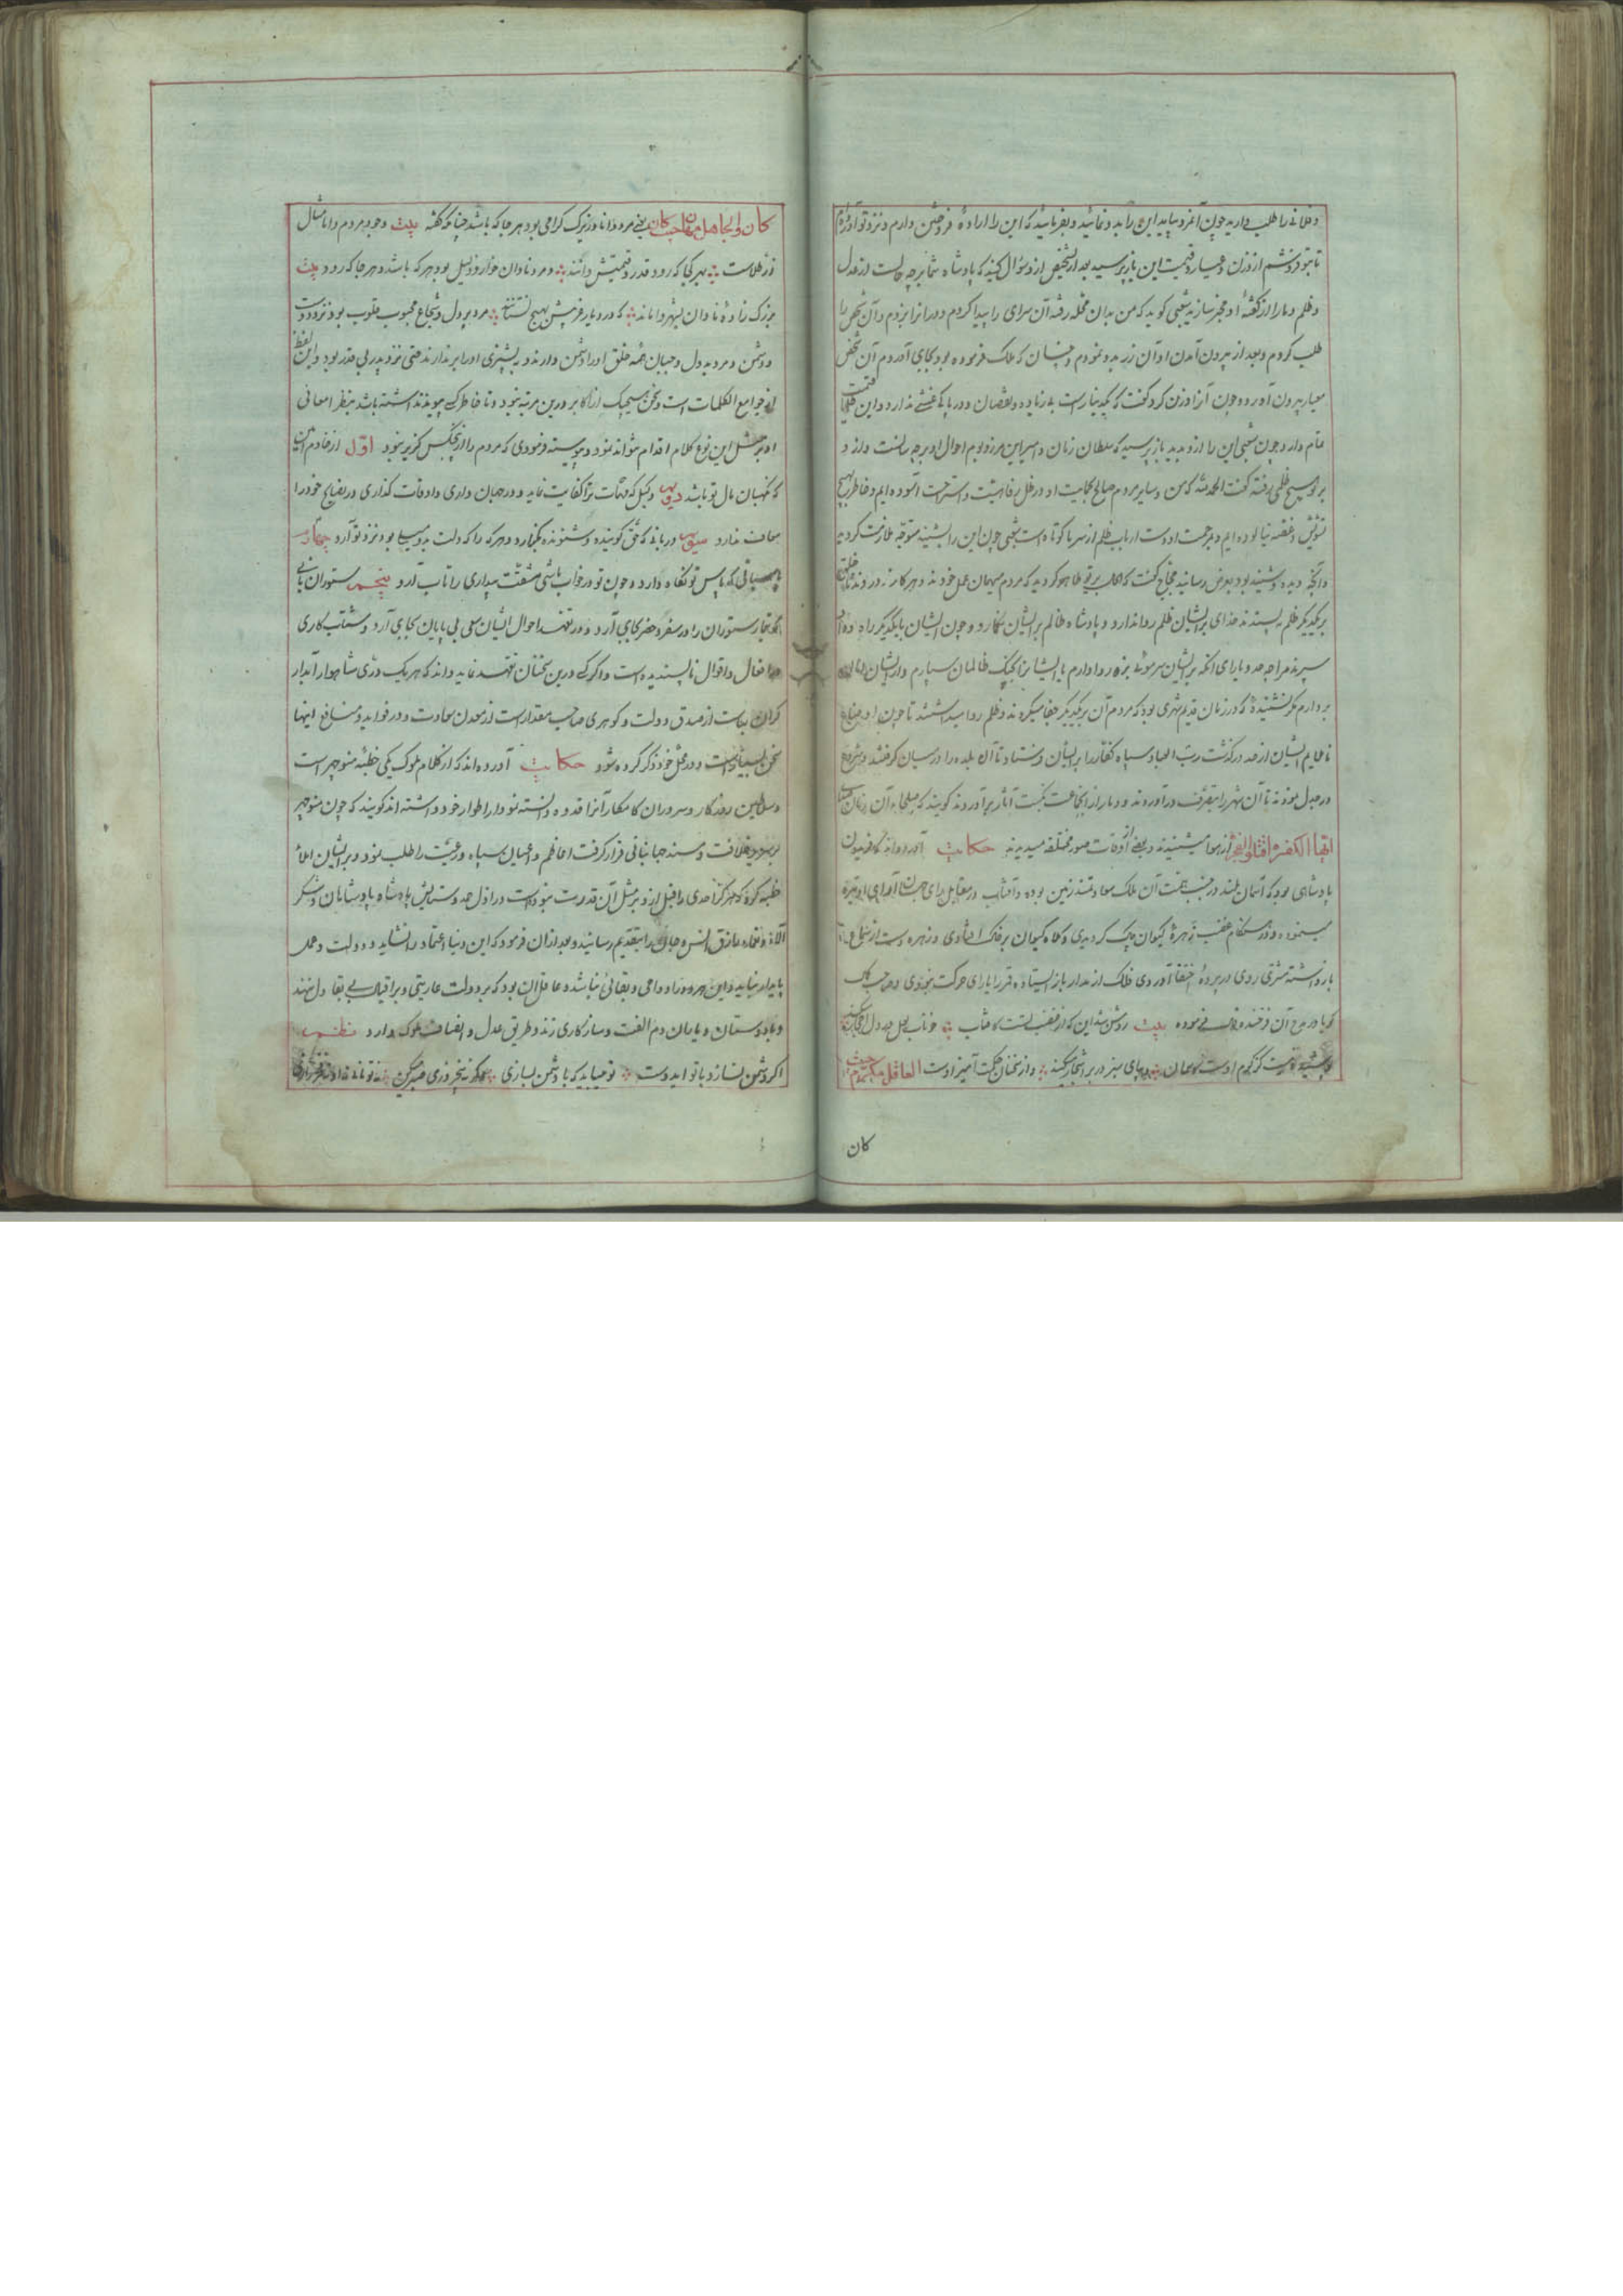 و فلانی را طلب دارید چون آنمرد بیاید این را بدو نمائید و بفرمائید که این را اراده فروختن دارم و نزد تو آورده‌ام
تا بتو فروشم از وزن و عیار و قیمت این باز پرسید بعد از تشخیص ازو سوال کنید که پادشاه شما بر چه حالت از عدل
و ظلم و ما را از گفته او مخبر سازید شعبی گوید که من بدان محله رفته آن سرای را پیدا کردم و در را بزدم و آن شخص را
طلب کردم و بعد از بیرون آمدن او آن زر بدو نمودم و چنان که ملک فرموده بود بجای آوردم آن شخص
معیار بیرون آورده چون آنرا وزن کرد گفت که یکدینار است بی زیاده و نقصان و در پاکی غشی ندارد و این قیمت
تمام دارد چون شعبی این را ازو بدید باز پرسید که سلطان زمان و امیر این مرز و بوم احوال او بر چه سانست و از و
بر تو هیچ ظلمی رفته گفت الحمد لله که من و سایر مردم صالح بحمایت او در ظل رفاهیت و استراحت آسوده‌ایم و خاطر بهیچ
تشویش و غصه نیالوده‌ایم و بمرحمت اوست ارباب ظلم از سر ما کوتاه است شعبی چون این را بشنید متوجه ملازمت گردید
و آنچه دیده و شنیده بود بعرض رسانید حجاج گفت که اکنون بر تو ظاهر گردید که مردم میهمان عمل خودند و هر کار
بر یکدیگر ظلم نپسندند خدای بر ایشان ظلم روا ندارد و پادشاه ظالم بر ایشان نگمارد و چون ایشان با یکدیگر راه
سپرند مرا چه حد و یارای آنکه بر ایشان سر موئی بزه روا دارم یا ایشانرا بچنگ ظالمان سپارم و از ایشان
بردارم مگر نشنیده که در زمان قدیم شهری بود که مردم آن بر یکدیگر جفا میکردند و ظلم روا میداشتند تا چون
ناملایم ایشان از حد درگذشت رب العباد سپاه کفار را بر ایشان فرستاد تا آن بلده را در میان گرفتند و شروع
در جدل نمودند تا آن شهر را بتصرف درآوردند و دمار از انجماعت نکبت آثار برآوردند گویند که صلحاء آن زمان
ایها الکفره اقتلوا الفجره از هوا میشنیدند و بعضی اوقات صور مختلفه میدیدند حکایت آورده‌اند که فریدون
پادشاهی بود که آسمان بلند در جنب همت آن ملک سعادتمند زمین بوده و آفتاب در مقابل رای جهان آرای او تیره
مینموده و در هنگام غضب زهره کیوان چاک گردیدی و کلاه کیوان بر خاک افتادی و زهره دست از
بازداشته مشتری روی در پرده اختفا آوردی فلک از مدار باز ایستاده قمر را یارای حرکت نبودی و صاحب
گویا در مدح آن فرخنده فرموده بیت روشن شد این که از غضب تست کافتاب
و از سخنان حکمت آمیز اوست العاقل مکرم حیث
کان
کان والجاهل مهان حیث کان یعنی مرد دانا و زیرک گرامی بود هر جا که باشد چنانکه گفته بیت وجود مردم دانا مثال
زر طلاست بهر کجا که رود قدر و قیمتش دانند و مرد نادان خوار و ذلیل بود هر که باشد و هر جا که رود بیت
بزرگ زاده نادان بشهر واماند که در دیار غریبش بهیچ نستانند مرد پر دل و شجاع محبوب قلوب بود نزد دوست
و دشمن و مرد بد دل و جبان همه خلق او را دشمن دارند و بپشیزی او را بر ندارند حتی نزد پدر بی قدر بود و این لفظ
از جوامع الکلمات است و سخن هیچیک از اکابر درین مرتبه نبود و تا خاطر کسی موید نداشته باشد بنظر امعانی
او بر مثل این نوع کلام اقدام نتواند نمود و پیوسته فرمودی که مردم را از پنجکس گزیر نبود اول از خادم
که نگهبان مال تو باشد دویم وکیل که مهمات ترا کفایت نماید و در جهان داری و اوقات گذاری در نصایح خود را
معاف ندارد سیوم دربانی که حق گوینده و شنونده نگهدارد و هر که را که دلت بدو مایل بود نزد تو آرد چهارم
پاسبانی که پاس تو نگاه دارد و چون تو در خواب باشی مشقت بیداری را تاب آرد پنجم ستوران بانی
که تیمار ستوران را در سفر و حضر بجای آرد و در تعهد احوال ایشان سعی بی پایان بجای آرد و شتاب کاری
در افعال و اقوال ناپسندیده است و اگر کسی درین سخنان تعهد نماید داند که هر یک دری شاهوار آبدار
گران بهاست از صدق دولت و گوهری صاحب مقدار است از معدن سعادت و در فواید و منافع اینها
سخن بسیار است و در محل خود ذکر کرده شود حکایت آورده‌اند که از کلام ملوک یکی خطبه منوچهر است
و سلاطین روزگار و سروران کامکار آنرا قدوه دانسته نمودار اطوار خود داشته‌اند گویند که چون منوچهر
بر سریر خلافت و مسند جهانبانی قرار گرفت اعاظم و اعیان سپاه و رعیت را طلب نمود و بر ایشان املاء
خطبه کرد که هرگز احدی را قبل ازو بر مثل آن قدرت نبوده است در اول حمد و ستایش پادشاه پادشاهان و شکر
آلاء و نعماء رازق انس و جان را بتقدیم رسانید و بعد از آن فرمود که این دنیا اعتماد را نشاید و دولت و عمل
پایدار نیاید و این را دوامی و بقائی نباشد و عاقل آن بود که بر دولت عاریتی و بر اقبال بی بقا دل ننهند
و با دوستان و یاران دم الفت و سازگاری زند و طریق عدل و انصاف ملوک دارد نظم
اگر دشمن نسازد با تو ای دوست تو میباید که با دشمن بسازی